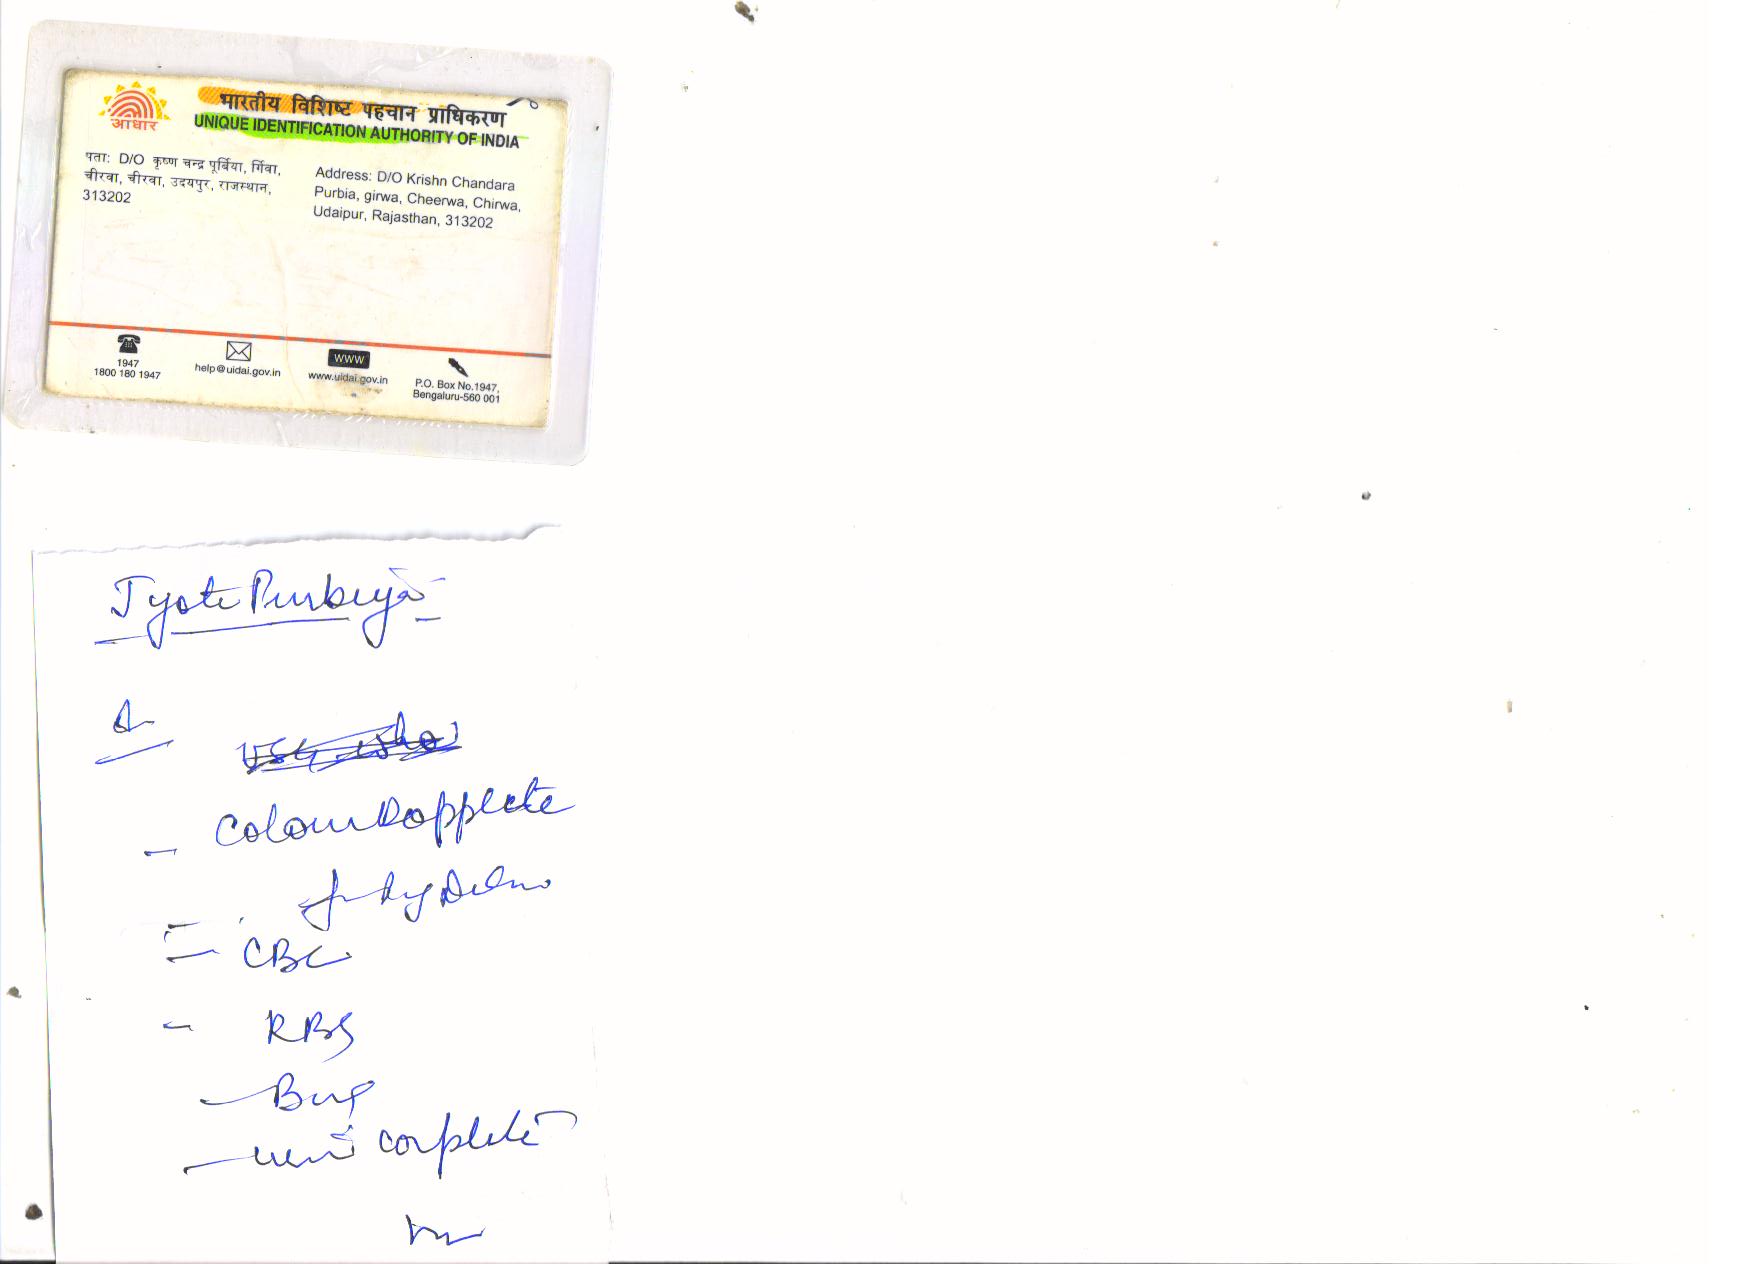 आधार
भारतीय विशिष्ट पहचान प्राधिकरण
UNIQUE IDENTIFICATION AUTHORITY OF INDIA
पता: D/O कृष्ण चन्द्र पूर्बिया, गिंवा,
चीरवा, चीरवा, उदयपुर, राजस्थान,
313202
Address: D/O Krishn Chandara
Purbia, girwa, Cheerwa, Chirwa,
Udaipur, Rajasthan, 313202
1947
1800 180 1947
help@uidai.gov.in
www
www.uidai.gov.in
P.O. Box No.1947,
Bengaluru-560 001
Jyoti Purbiya
- Colour
- CBC
- RBS
complete